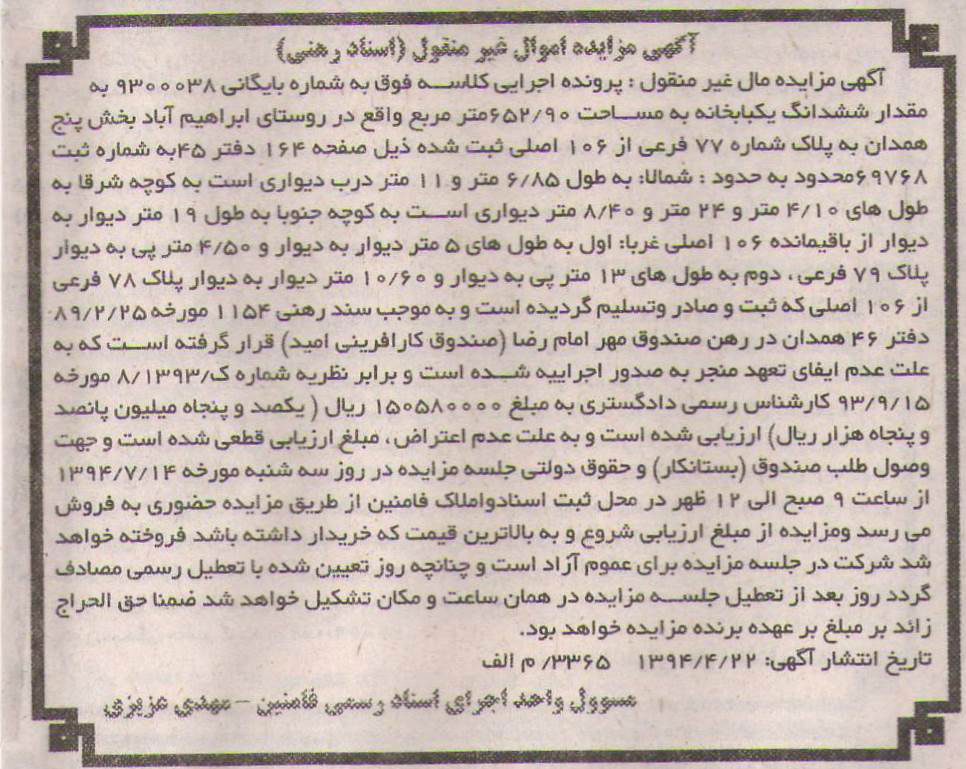 آگهی مزایده اموال غیر منقول (اسناد رهنی)
آگهی مزایده مال غیر منقول : پرونده اجرایی کلاسه فوق به شماره بایگانی ۹۳۰۰۰۳۸ به
مقدار ششدانگ یکبابخانه به مساحت ۶۵۲/۹۰متر مربع واقع در روستای ابراهیم آباد بخش پنج
همدان به پلاک شماره ۷۷ فرعی از ۱۰۶ اصلی ثبت شده ذیل صفحه ۱۶۴ دفتر ۴۵به شماره ثبت
۶۹۷۶۸محدود به حدود : شمالا: به طول ۶/۸۵ متر و ۱۱ متر درب دیواری است به کوچه شرقا به
طول های ۴/۱۰ متر و ۲۴ متر و ۸/۴۰ متر دیواری است به کوچه جنوبا به طول ۱۹ متر دیوار به
دیوار از باقیمانده ۱۰۶ اصلی غربا: اول به طول های ۵ متر دیوار به دیوار و ۴/۵۰ متر پی به دیوار
پلاک ۷۹ فرعی ، دوم به طول های ۱۳ متر پی به دیوار و ۱۰/۶۰ متر دیوار به دیوار پلاک ۷۸ فرعی
از ۱۰۶ اصلی که ثبت و صادر وتسلیم گردیده است و به موجب سند رهنی ۱۱۵۴ مورخه ۸۹/۲/۲۵
دفتر ۴۶ همدان در رهن صندوق مهر امام رضا (صندوق کارافرینی امید) قرار گرفته است که به
علت عدم ایفای تعهد منجر به صدور اجراییه شده است و برابر نظریه شماره ک/۸/۱۳۹۳ مورخه
۹۳/۹/۱۵ کارشناس رسمی دادگستری به مبلغ ۱۵۰۵۸۰۰۰۰ ریال ( یکصد و پنجاه میلیون پانصد
و پنجاه هزار ریال) ارزیابی شده است و به علت عدم اعتراض ، مبلغ ارزیابی قطعی شده است و جهت
وصول طلب صندوق (بستانکار) و حقوق دولتی جلسه مزایده در روز سه شنبه مورخه ۱۳۹۴/۷/۱۴
از ساعت ۹ صبح الی ۱۲ ظهر در محل ثبت اسنادواملاک فامنین از طریق مزایده حضوری به فروش
می رسد ومزایده از مبلغ ارزیابی شروع و به بالاترین قیمت که خریدار داشته باشد فروخته خواهد
شد شرکت در جلسه مزایده برای عموم آزاد است و چنانچه روز تعیین شده با تعطیل رسمی مصادف
گردد روز بعد از تعطیل جلسه مزایده در همان ساعت و مکان تشکیل خواهد شد ضمنا حق الحراج
زائد بر مبلغ بر عهده برنده مزایده خواهد بود.
تاریخ انتشار آگهی: ۱۳۹۴/۴/۲۲ ۳۳۶۵/ م الف
مسوول واحد اجرای اسناد رسمی فامنین – مهدی عزیزی